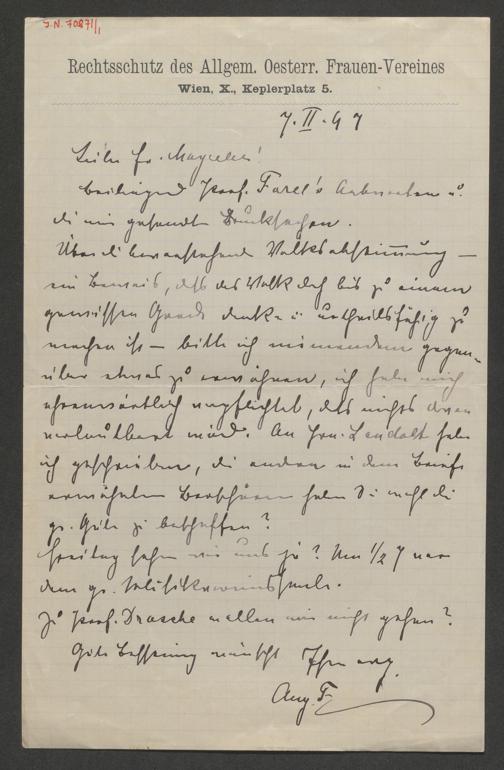 J.N. 70871/1
Rechtsschutz des Allgem. Oesterr. Frauen-Vereines
Wien, X., Keplerplatz 5.
7.II.97
Liebe Fr. Mayreder!
beiliegend Prof. Forel's Antworten u.
die mir gesandten Drucksachen.
Über die bevorstehende Volksabstimmung —
ein Beweis, daß das Volk doch bis zu einem
gewissen Grade denk- u. urtheilsfähig zu
machen ist — bitte ich niemandem gegen-
über etwas zu erwähnen, ich habe mich
ehrenwörtlich verpflichtet, daß nichts davon
verlautbart wird. An Hrn. Landolt habe
ich geschrieben, die andern in dem Briefe
erwähnten Broschüren haben Sie wohl die
gr. Güte zu beschaffen?
Freitag sehen wir uns ja? Um 1/2 7 vor
dem gr.
Zu Prof. Drasche wollen wir nicht gehen?
Gute Besserung wünscht Ihre erg.
Aug. F.